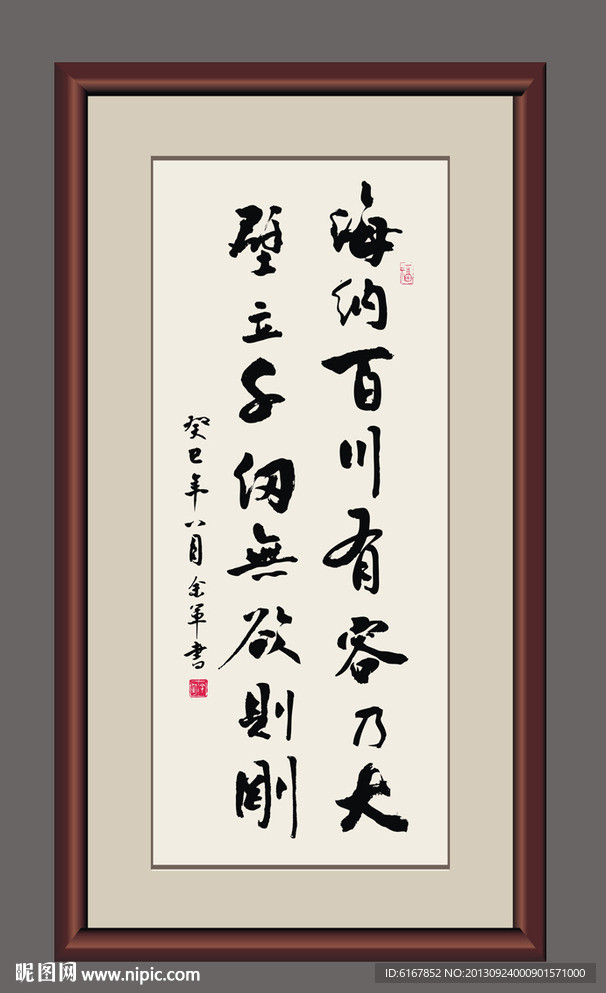 海納百川有容乃大
壁立千仞無欲則剛
癸巳年八月金軍書
昵图网 www.nipic.com
ID:6167852 NO:20130924000901571000